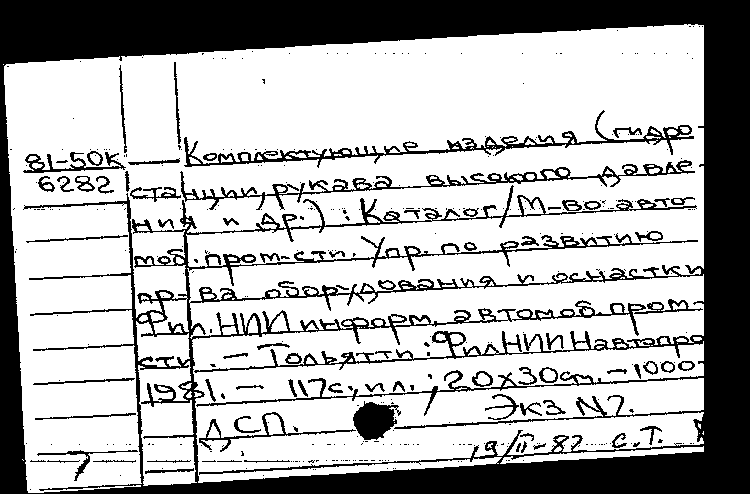 81-50К Комплектующие изделия (гидро-
6282 станции, рукава высокого давле-
ния и др.) : Каталог/М-во авто-
моб. пром-сти. Упр. по развитию
пр-ва оборудования и оснастки
Фил. НИИ информ. автомоб. пром-
сти. - Тольятти : Фил НИИНавтопро
1981. - 117с., ил. ; 20х30см. - 1000
ДСП. Экз N7.
7 19/II-82 С.Т.